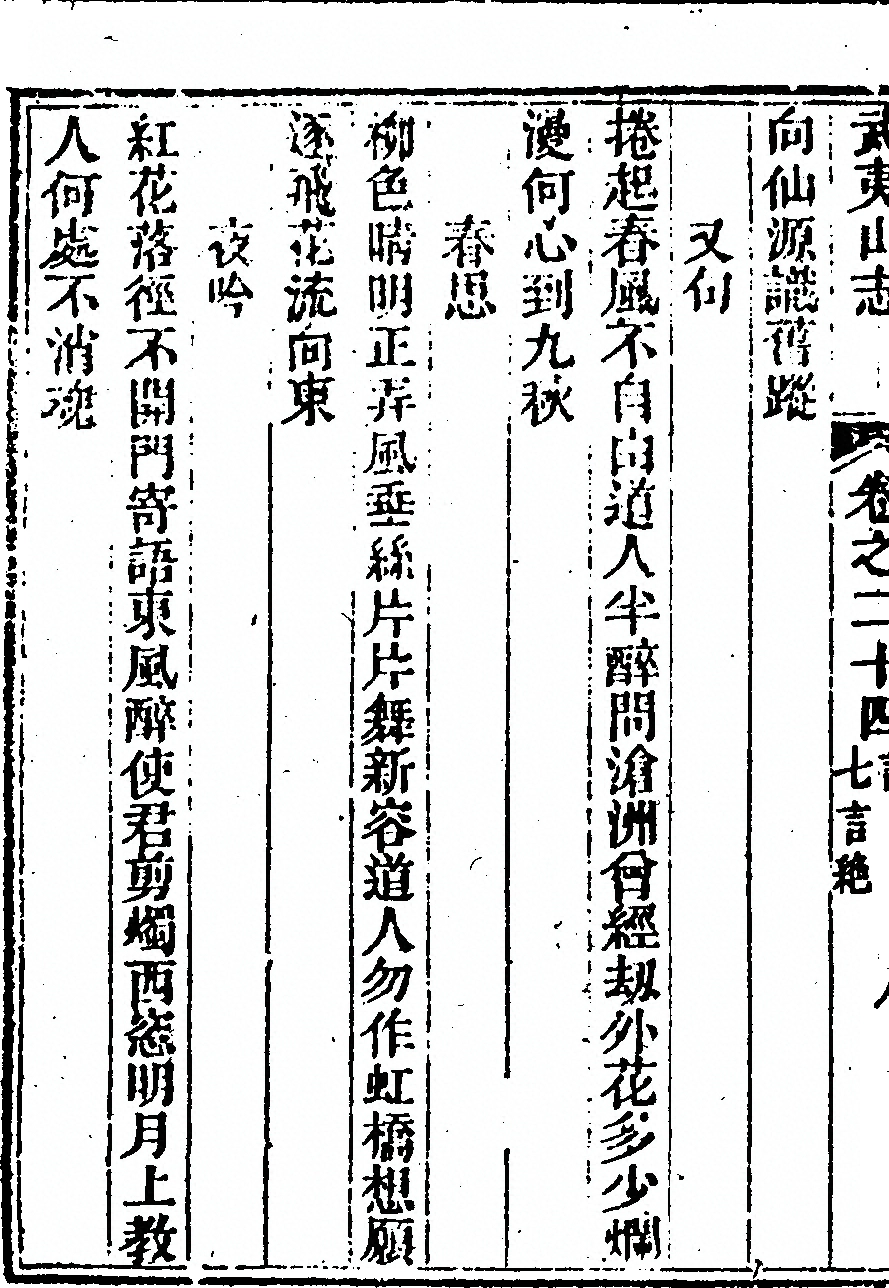 武夷山志
卷之二十四
七言絶
向仙源識舊蹤
又句
捲起春風不自由道人半醉問滄洲曾經劫外花多少爛
漫何心到九秋
春思
柳色晴明正弄風垂絲片片舞新容道人勿作虹橋想願
逐飛花流向東
夜吟
紅花落徑不開門寄語東風醉使君剪燭西窓明月上教
人何處不消魂